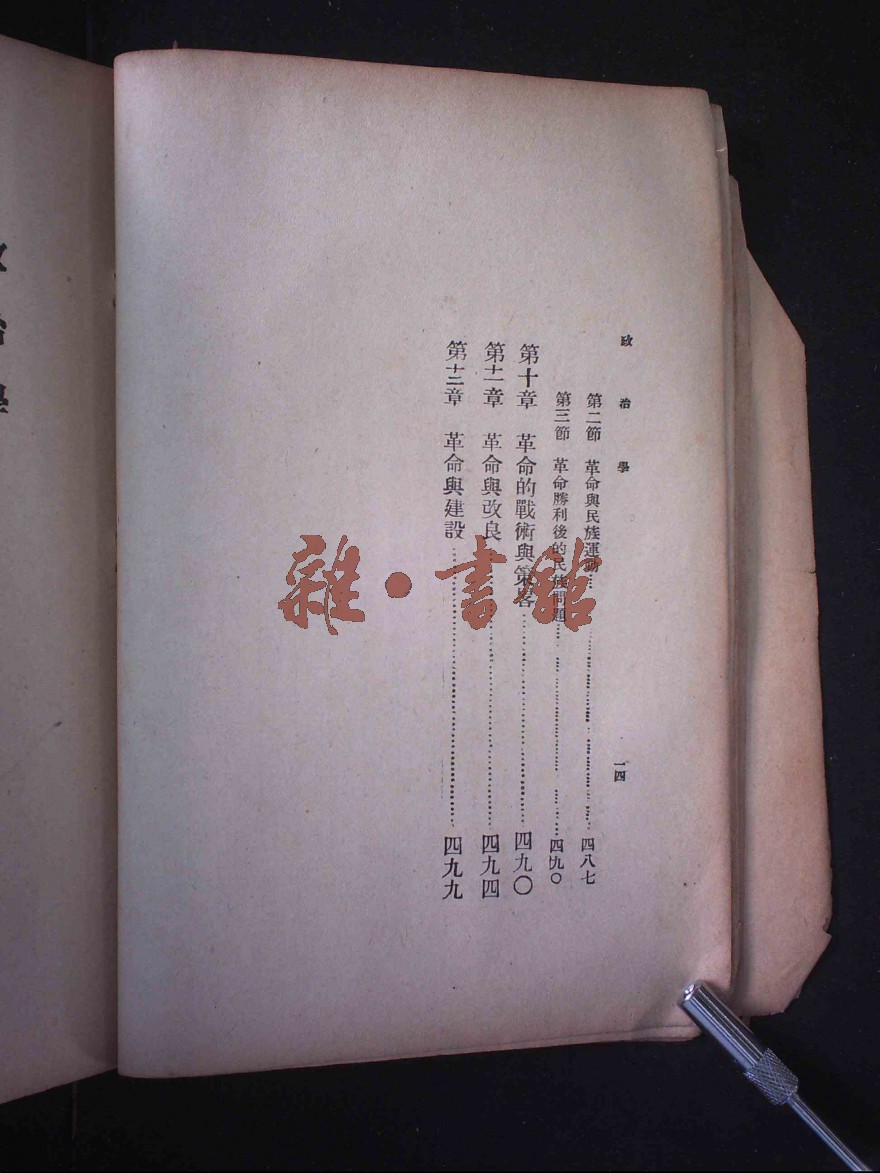 政治學
一四
第二節 革命與民族運動 四八七
第三節 革命勝利後的民族問題 四九〇
第十章 革命的戰術與策畧 四九〇
第十一章 革命與改良 四九四
第十二章 革命與建設 四九九
雜·書館